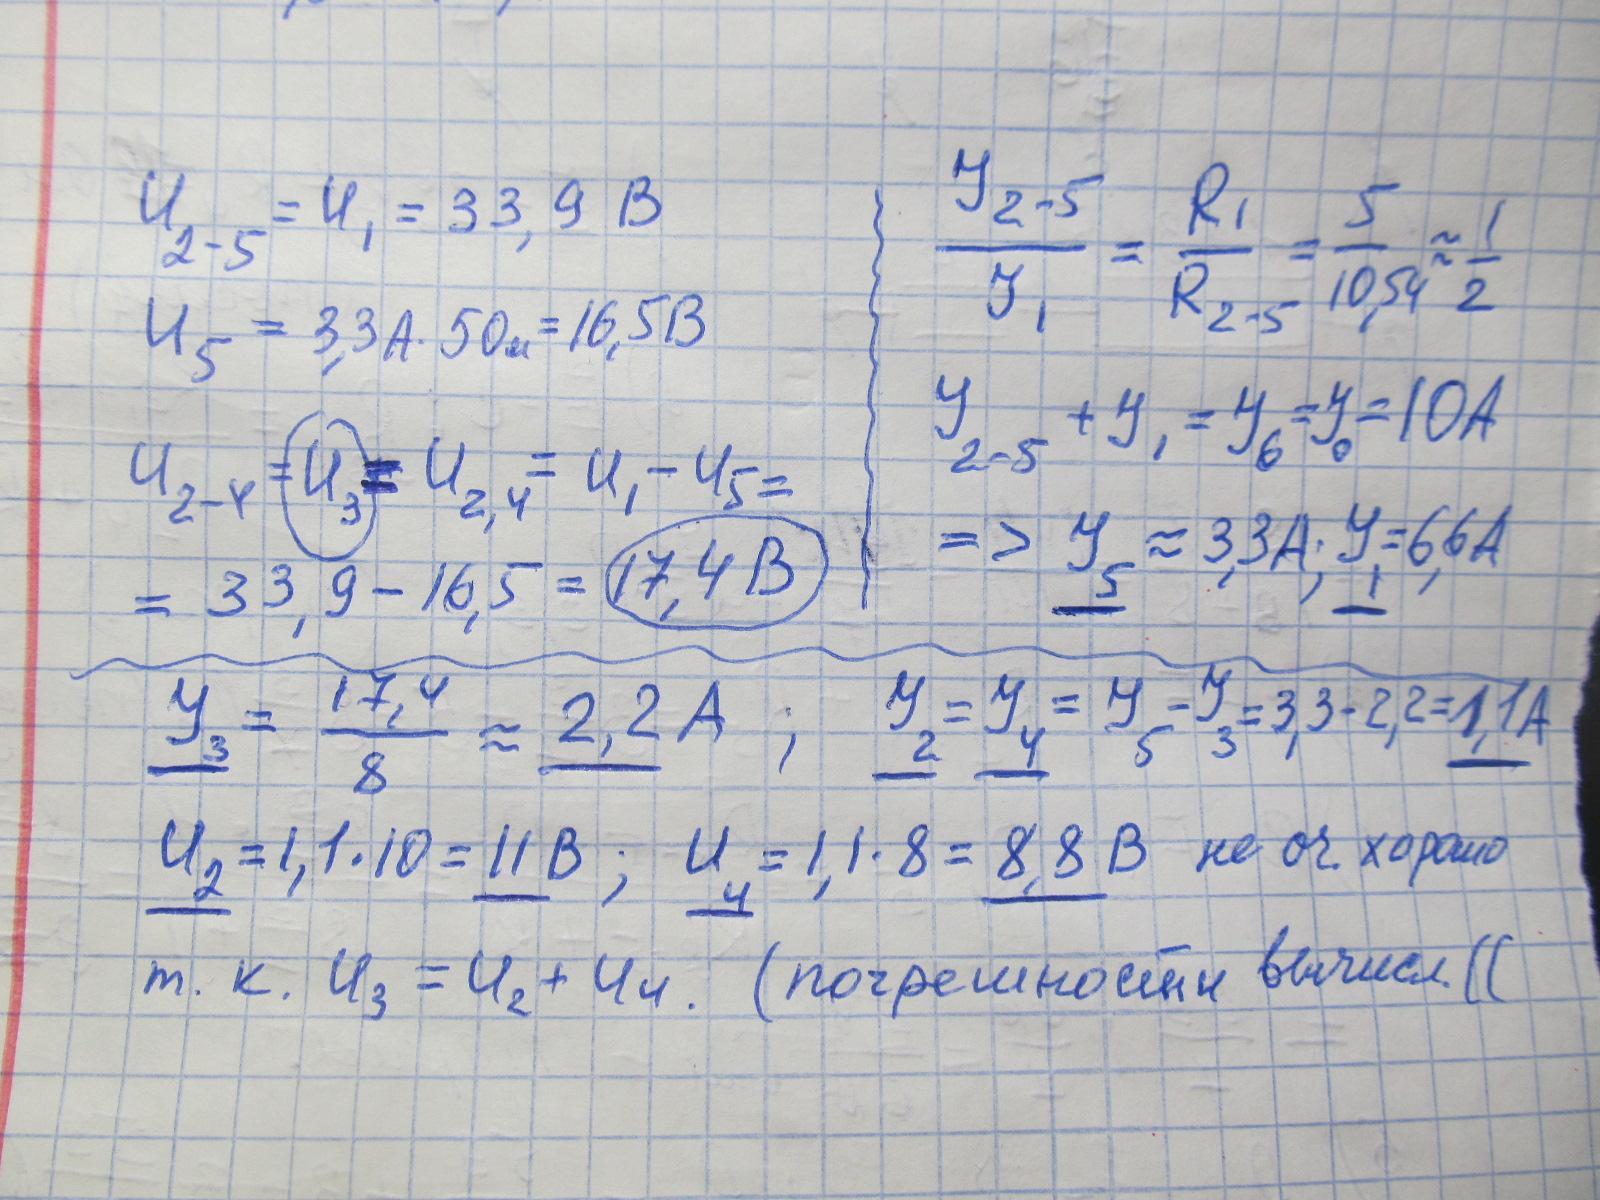 U2-5 = U1 = 33,9 В
U5 = 3,3А · 5Ом = 16,5В
U2-4 = U3 = U2,4 = U1 - U5 =
= 33,9 - 16,5 = 17,4 В
J2-5 / J1 = R1 / R2-5 = 5 / 10,54 ≈ 1 / 2
J2-5 + J1 = J6 = J0 = 10А
=> J5 ≈ 3,3А; J1 = 6,6А
J3 = 17,4 / 8 ≈ 2,2 А ; J2 = J4 = J5 - J3 = 3,3 - 2,2 = 1,1А
U2 = 1,1 · 10 = 11 В ; U4 = 1,1 · 8 = 8,8 В не оч. хорошо
т. к. U3 = U2 + U4. (погрешности вычисл. ((